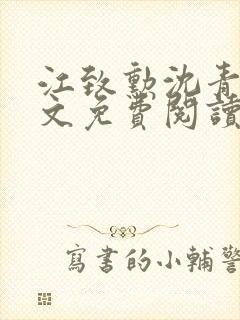 江致勳沈青
文免費閱讀
寫書的小輔警